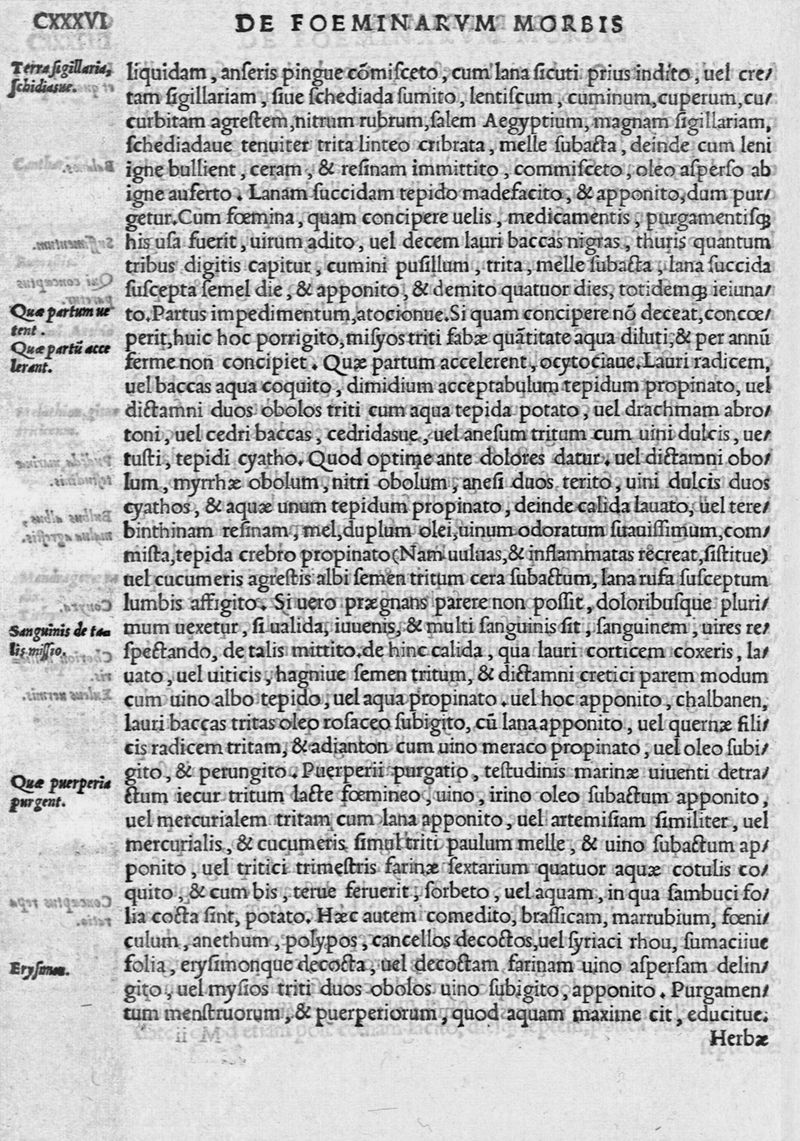 CXXXVI DE FOEMINARVM MORBIS
Terra sigillaria,
schidiasue.
liquidam, anseris pingue cōmisceto, cum lana sicuti prius indito, uel cre/
tam sigillariam, siue schediada sumito, lentiscum, cuminum, cuperum, cu/
curbitam agrestem, nitrum rubrum, salem Aegyptium, magnam sigillariam,
schediadaue tenuiter trita linteo cribrata, melle subacta, deinde cum leni
igne bullient, ceram, & resinam immittito, commisceto, oleo asperso ab
igne auferto. Lanam succidam tepido madefacito, & apponito, dum pur/
getur. Cum fœmina, quam concipere uelis, medicamentis, purgamentisq́
his usa fuerit, uirum adito, uel decem lauri baccas nigras, thuris quantum
tribus digitis capitur, cumini pusillum, trita, melle subacta, lana succida
suscepta semel die, & apponito, & demito quatuor dies, totidemq́ ieiuna/
Quæ partum ue
tent.
to. Partus impedimentum, atocionue. Si quam concipere nō deceat, concœ/
perit, huic hoc porrigito, misyos triti fabæ quātitate aqua diluti, & per annū
Quæ partū acce
lerant.
ferme non concipiet. Quæ partum accelerent, ocytociaue. Lauri radicem,
uel baccas aqua coquito, dimidium acceptabulum tepidum propinato, uel
dictamni duos obolos triti cum aqua tepida potato, uel drachmam abro/
toni, uel cedri baccas, cedridasue, uel anesum tritum cum uini dulcis, ue/
tusti, tepidi cyatho. Quod optime ante dolores datur. uel dictamni obo/
lum, myrrhæ obolum, nitri obolum, anesi duos terito, uini dulcis duos
cyathos, & aquæ unum tepidum propinato, deinde calida lauato, uel tere/
binthinam resinam, mel, duplum olei, uinum odoratum suauissimum, com/
mista, tepida crebro propinato (Nam uuluas, & inflammatas recreat, sistitue)
uel cucumeris agrestis albi semen tritum cera subactum, lana rufa susceptum
lumbis affigito. Si uero prægnans parere non possit, doloribusque pluri/
Sanguinis de ta
lis missio.
mum uexetur, si ualida, iuuenis, & multi sanguinis sit, sanguinem, uires re/
spectando, de talis mittito. de hinc calida, qua lauri corticem coxeris, la/
uato, uel uiticis, hagniue semen tritum, & dictamni cretici parem modum
cum uino albo tepido, uel aqua propinato. uel hoc apponito, chalbanen,
lauri baccas tritas oleo rosaceo subigito, cū lana apponito, uel quernæ fili/
cis radicem tritam, & adianton cum uino meraco propinato, uel oleo subi/
Quæ puerperia
purgent.
gito, & perungito. Puerperii purgatio, testudinis marinæ uiuenti detra/
ctum iecur tritum lacte fœmineo, uino, irino oleo subactum apponito,
uel mercurialem tritam cum lana apponito, uel artemisiam similiter, uel
mercurialis, & cucumeris simul triti paulum melle, & uino subactum ap/
ponito, uel tritici trimestris farinæ sextarium quatuor aquæ cotulis co/
quito, & cum bis, terue feruerit, sorbeto, uel aquam, in qua sambuci fo/
lia cocta sint, potato. Hæc autem comedito, brassicam, marrubium, fœni/
culum, anethum, polypos, cancellos decoctos, uel syriaci rhou, sumaciiue
Erysimon.
folia, erysimonque decocta, uel decoctam farinam uino aspersam delin/
gito, uel mysios triti duos obolos uino subigito, apponito. Purgamen/
tum menstruorum, & puerperiorum, quod aquam maxime cit, educitue.
Herbæ